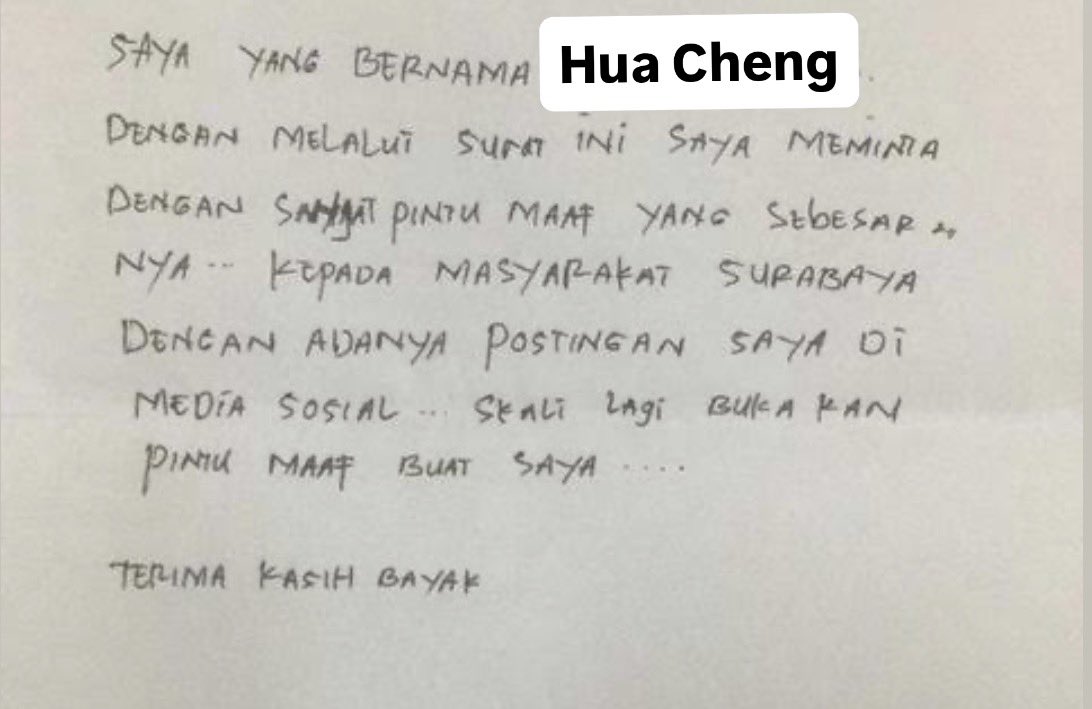 SAYA YANG BERNAMA Hua Cheng
DENGAN MELALUI SURAT INI SAYA MEMINTA
DENGAN SANGAT PINTU MAAF YANG SEBESAR"
NYA... KEPADA MASYARAKAT SURABAYA
DENGAN ADANYA POSTINGAN SAYA DI
MEDIA SOSIAL... SKALI LAGI BUKA KAN
PINTU MAAF BUAT SAYA ....
TERIMA KASIH BAYAK